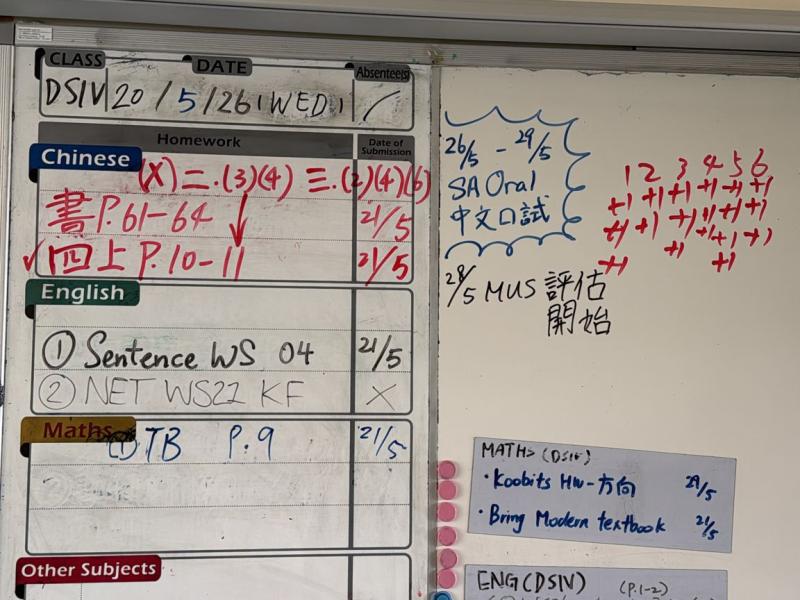 CLASS DATE Absentee(s)
DSIV 20/5/26(WED) /
Homework Date of Submission
Chinese
(X)二.(3)(4) 三.(2)(4)(6)
書P.61-64 ↓ 21/5
✓四上 P.10-11 21/5
English
① Sentence WS 04 21/5
② NET WS22 KF X
Maths
① TB P.9 21/5
Other Subjects
26/5 - 29/5
SA Oral
中文口試
28/5 MUS 評估
開始
1 2 3 4 5 6
+1 +1 +1 +1 +1 +1
+1 +1 +1 +1 +1 +1
+1 +1 +1 +1 +1
+1
MATHS (DSIV)
· Koobits HW-方向 29/5
· Bring Modern textbook 21/5
ENG(DSIV) (P.1-2)